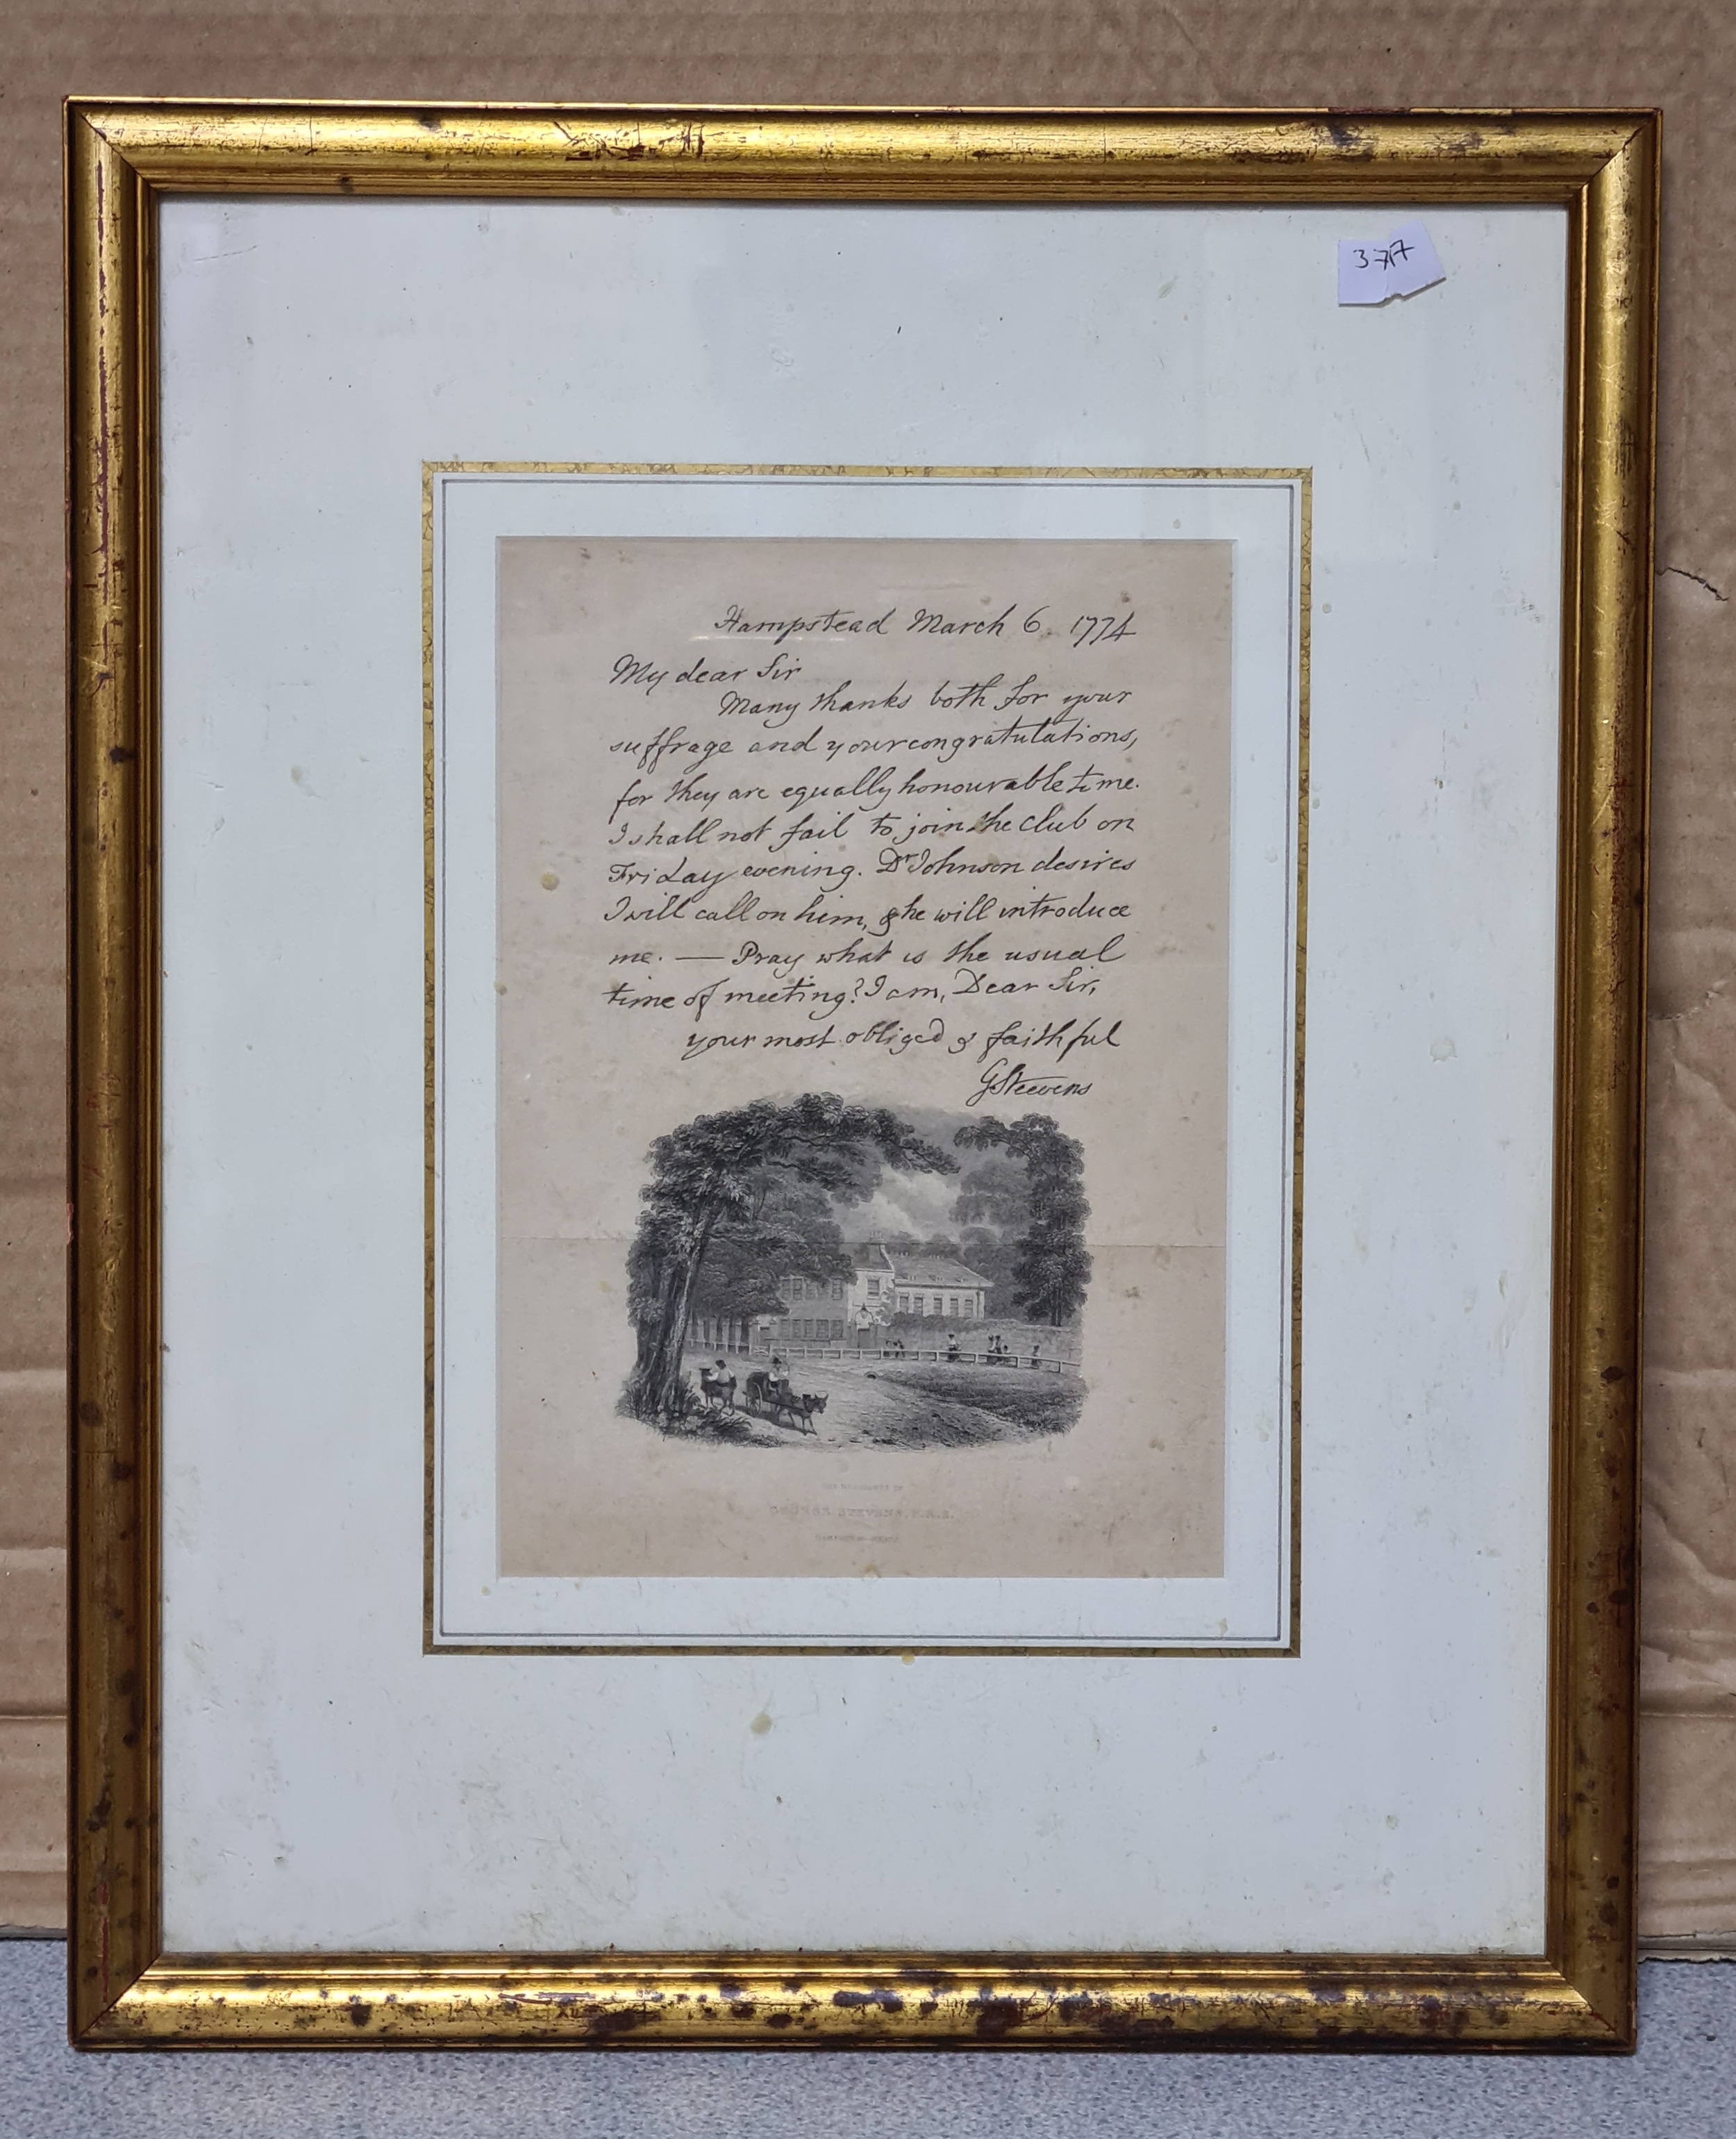 37A
Hampstead March 6. 1774
My dear Sir
Many thanks both for your
suffrage and your congratulations,
for they are equally honourable to me.
I shall not fail to join the club on
Friday evening. Dr Johnson desires
I will call on him, & he will introduce
me. — Pray what is the usual
time of meeting? I am, Dear Sir,
your most obliged & faithful
GSteevens
GEORGE STEVENS, F.R.S.